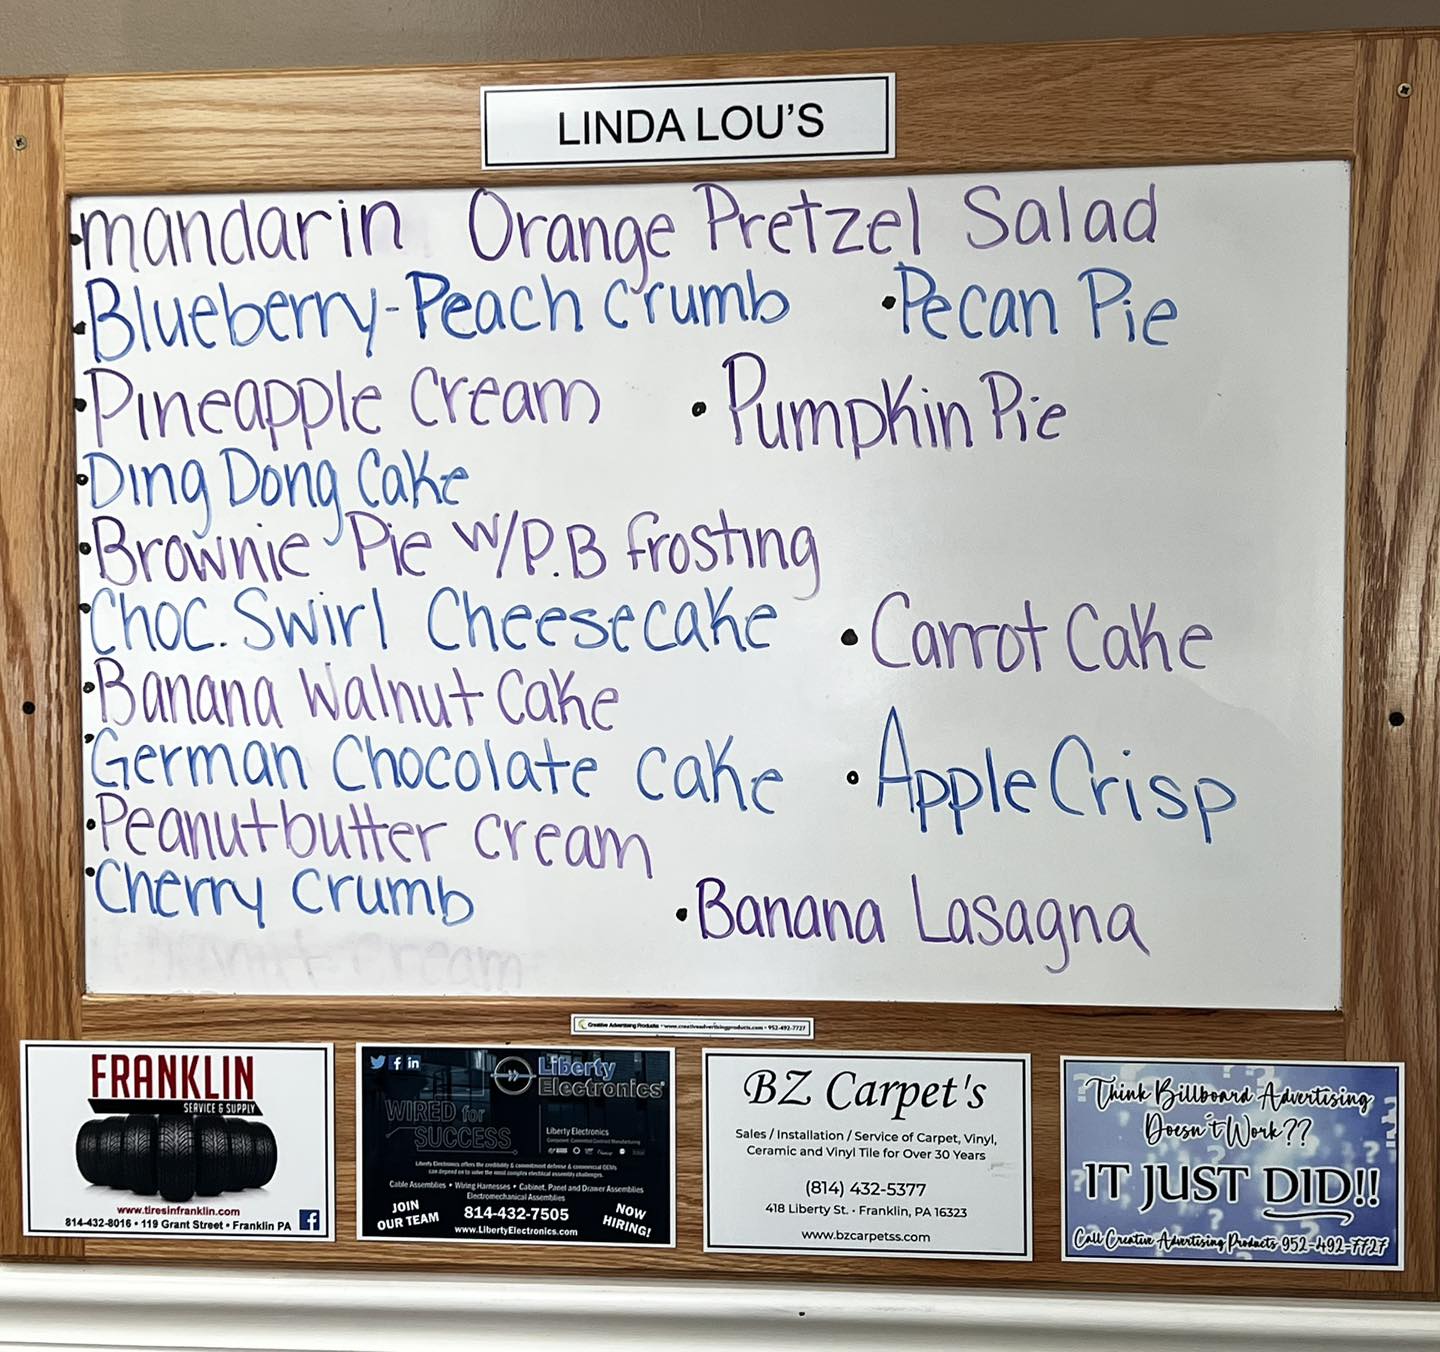 LINDA LOU'S
•mandarin Orange Pretzel Salad
•Blueberry-Peach Crumb •Pecan Pie
•Pineapple Cream •Pumpkin Pie
•Ding Dong Cake
•Brownie Pie w/P.B frosting
•Choc. Swirl Cheesecake •Carrot Cake
•Banana Walnut Cake
•German Chocolate Cake •Apple Crisp
•Peanutbutter Cream
•Cherry Crumb •Banana Lasagna
Cream
Creative Advertising Products • www.creativeadvertisingproducts.com • 952-492-7727
FRANKLIN
SERVICE & SUPPLY
www.tiresinfranklin.com
814-432-8016 • 119 Grant Street • Franklin PA
Liberty
Electronics®
WIRED for
SUCCESS
Liberty Electronics
Liberty Electronics offers the credibility & commitment defense & commercial OEMs
can depend on to solve the most complex electrical assembly challenges.
Cable Assemblies • Wiring Harnesses • Cabinet, Panel and Drawer Assemblies
Electromechanical Assemblies
JOIN
OUR TEAM
814-432-7505
www.LibertyElectronics.com
NOW
HIRING!
BZ Carpet's
Sales / Installation / Service of Carpet, Vinyl,
Ceramic and Vinyl Tile for Over 30 Years
(814) 432-5377
418 Liberty St. • Franklin, PA 16323
www.bzcarpetss.com
Think Billboard Advertising
Doesn't Work??
IT JUST DID!!
Call Creative Advertising Products 952-492-7727